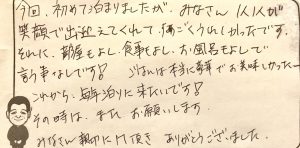 今回、初めて泊まりましたが、みなさん1人1人が
笑顔で出迎えてくれて、すごくうれしかったです。
それに、部屋もよし、食事もよし、お風呂もよしで
言う事なしです!ごはんは本当に豪華でお美味しかったー
これから、毎年泊りに来たいです!
その時は、またお願いします。
みなさん親切にして頂き ありがとうございました。